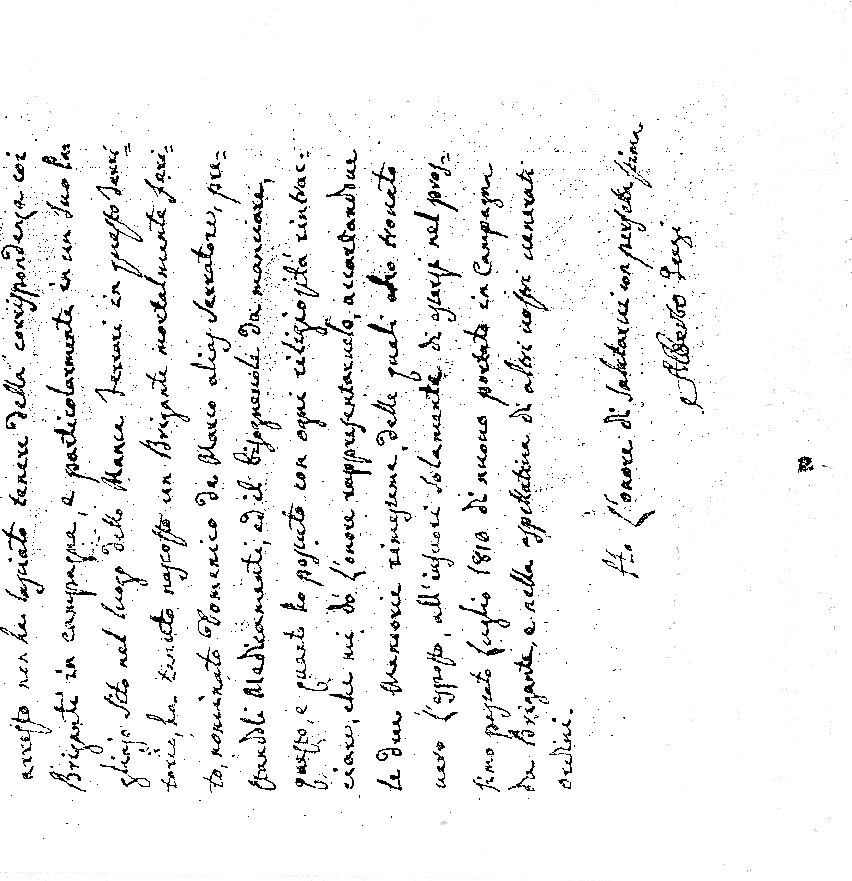 arresto non ha lasciato tenere della corrispondenza coi
Briganti in campagna, e particolarmente in un suo Pa=
gliajo sito nel luogo detto Manca Ferrari in questo Terri=
torio, ha tenuto nascosto un Brigante mortalmente feri=
to, nominato Domenico de Marco alias Serratore, pre=
standoli Medicamenti, ed il bisognevole da mangiare,
questo, e quanto ho possuto con ogni religiosità rintrac=
ciare, che mi dò l'onore rappresentarvelo, accertandove
le due Memorie rimesseme, delle quali ho trovato
vero l'esposto, all'infuori solamente di essersi nel pros=
simo passato Luglio 1810 di nuovo portato in Campagna
da Brigante, e nella aspettativa di altri vostri venerati
ordini.
Ho l'onore di salutarvi con perfetta stima
Alberto